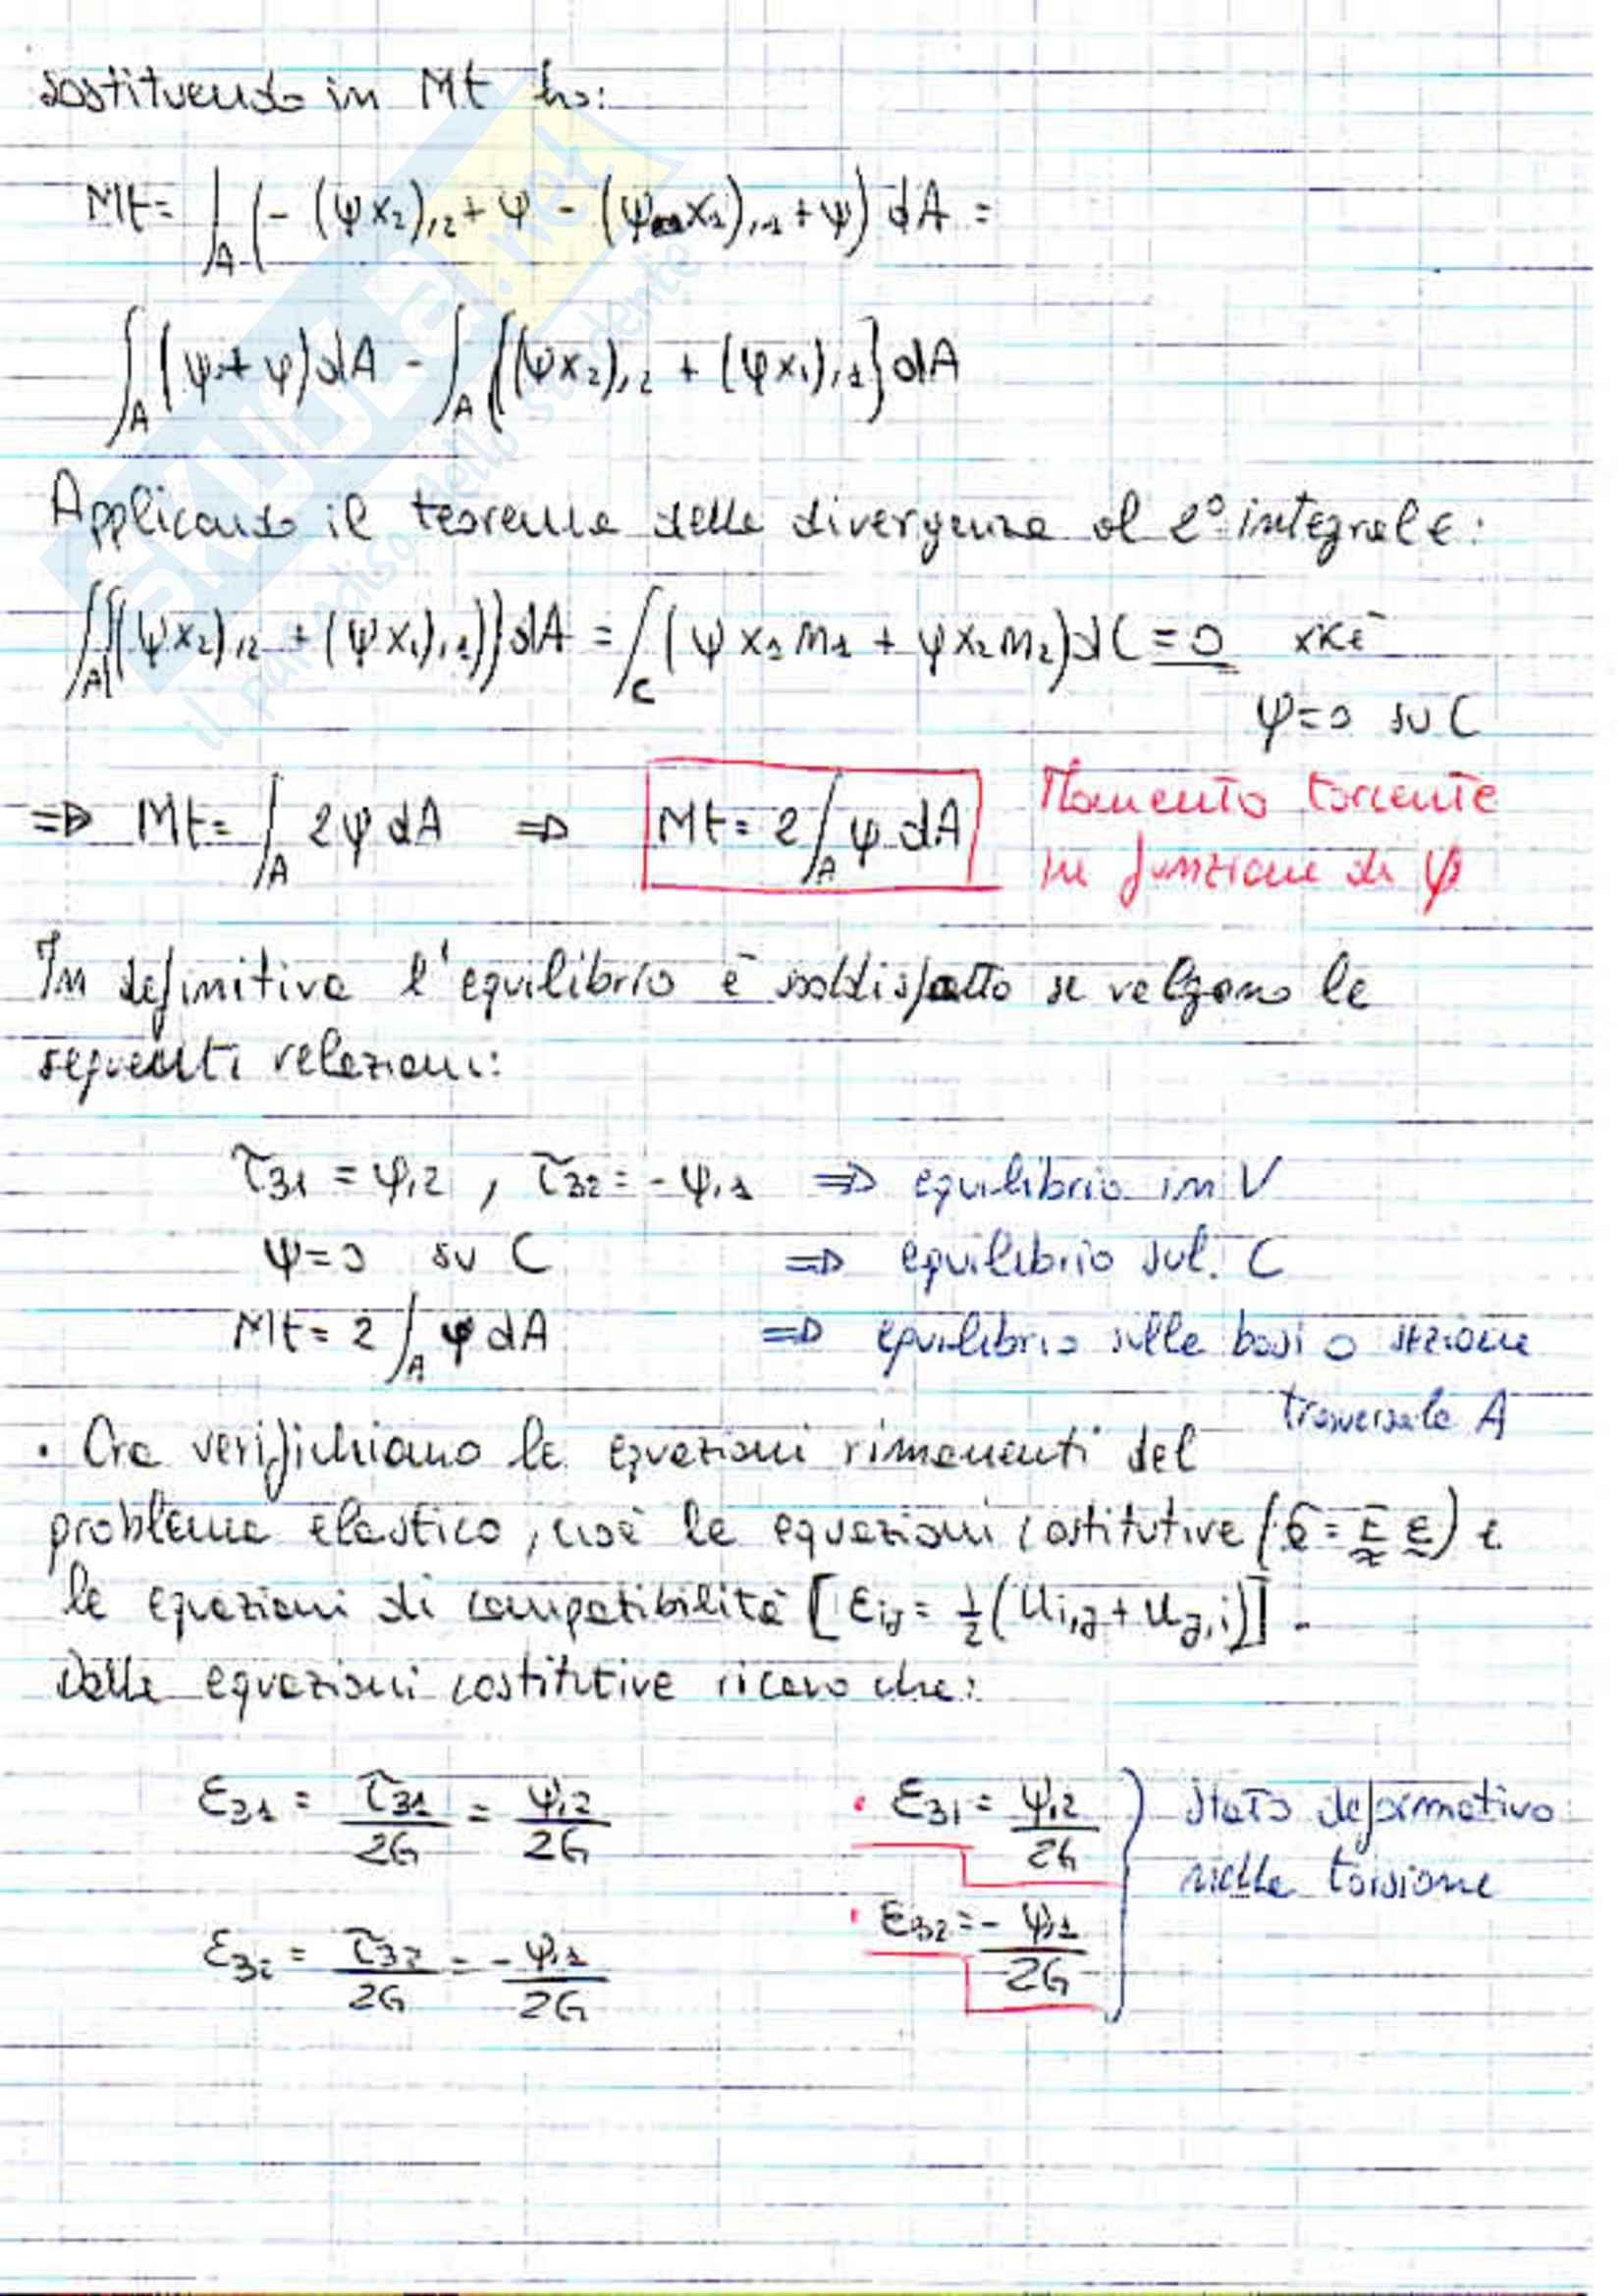 sostituendo in Mt ho:
Mt = ∫_A (- (ψx₂),₂ + ψ - (ψx₁),₁ + ψ) dA =
∫_A (ψ + ψ) dA - ∫_A {(ψx₂),₂ + (ψx₁),₁} dA
Applicando il teorema della divergenza al 2° integrale:
∫_A {(ψx₂),₂ + (ψx₁),₁)} dA = ∫_C (ψx₁n₁ + ψx₂n₂) dC = 0 xkè
ψ=0 su C
=> Mt = ∫_A 2ψ dA => Mt = 2∫_A ψ dA Momento torcente
in funzione di ψ
In definitiva l'equilibrio è soddisfatto se valgono le
seguenti relazioni:
τ₃₁ = ψ,₂ , τ₃₂ = -ψ,₁ => equilibrio in V
ψ=0 su C => equilibrio sul C
Mt = 2∫_A ψ dA => equilibrio sulle basi o sezione
trasversale A
• Ora verifichiamo le equazioni rimanenti del
problema elastico, cioè le equazioni costitutive (σ = E ε) e
le equazioni di compatibilità [εij = 1/2 (ui,j + uj,i)].
Dalle equazioni costitutive ricavo che:
ε₃₁ = τ₃₁/2G = ψ,₂/2G • ε₃₁ = ψ,₂/2G } stato deformativo
nella torsione
ε₃₂ = τ₃₂/2G = -ψ,₁/2G • ε₃₂ = -ψ,₁/2G
SKUOLA.net
il paradiso dello studente